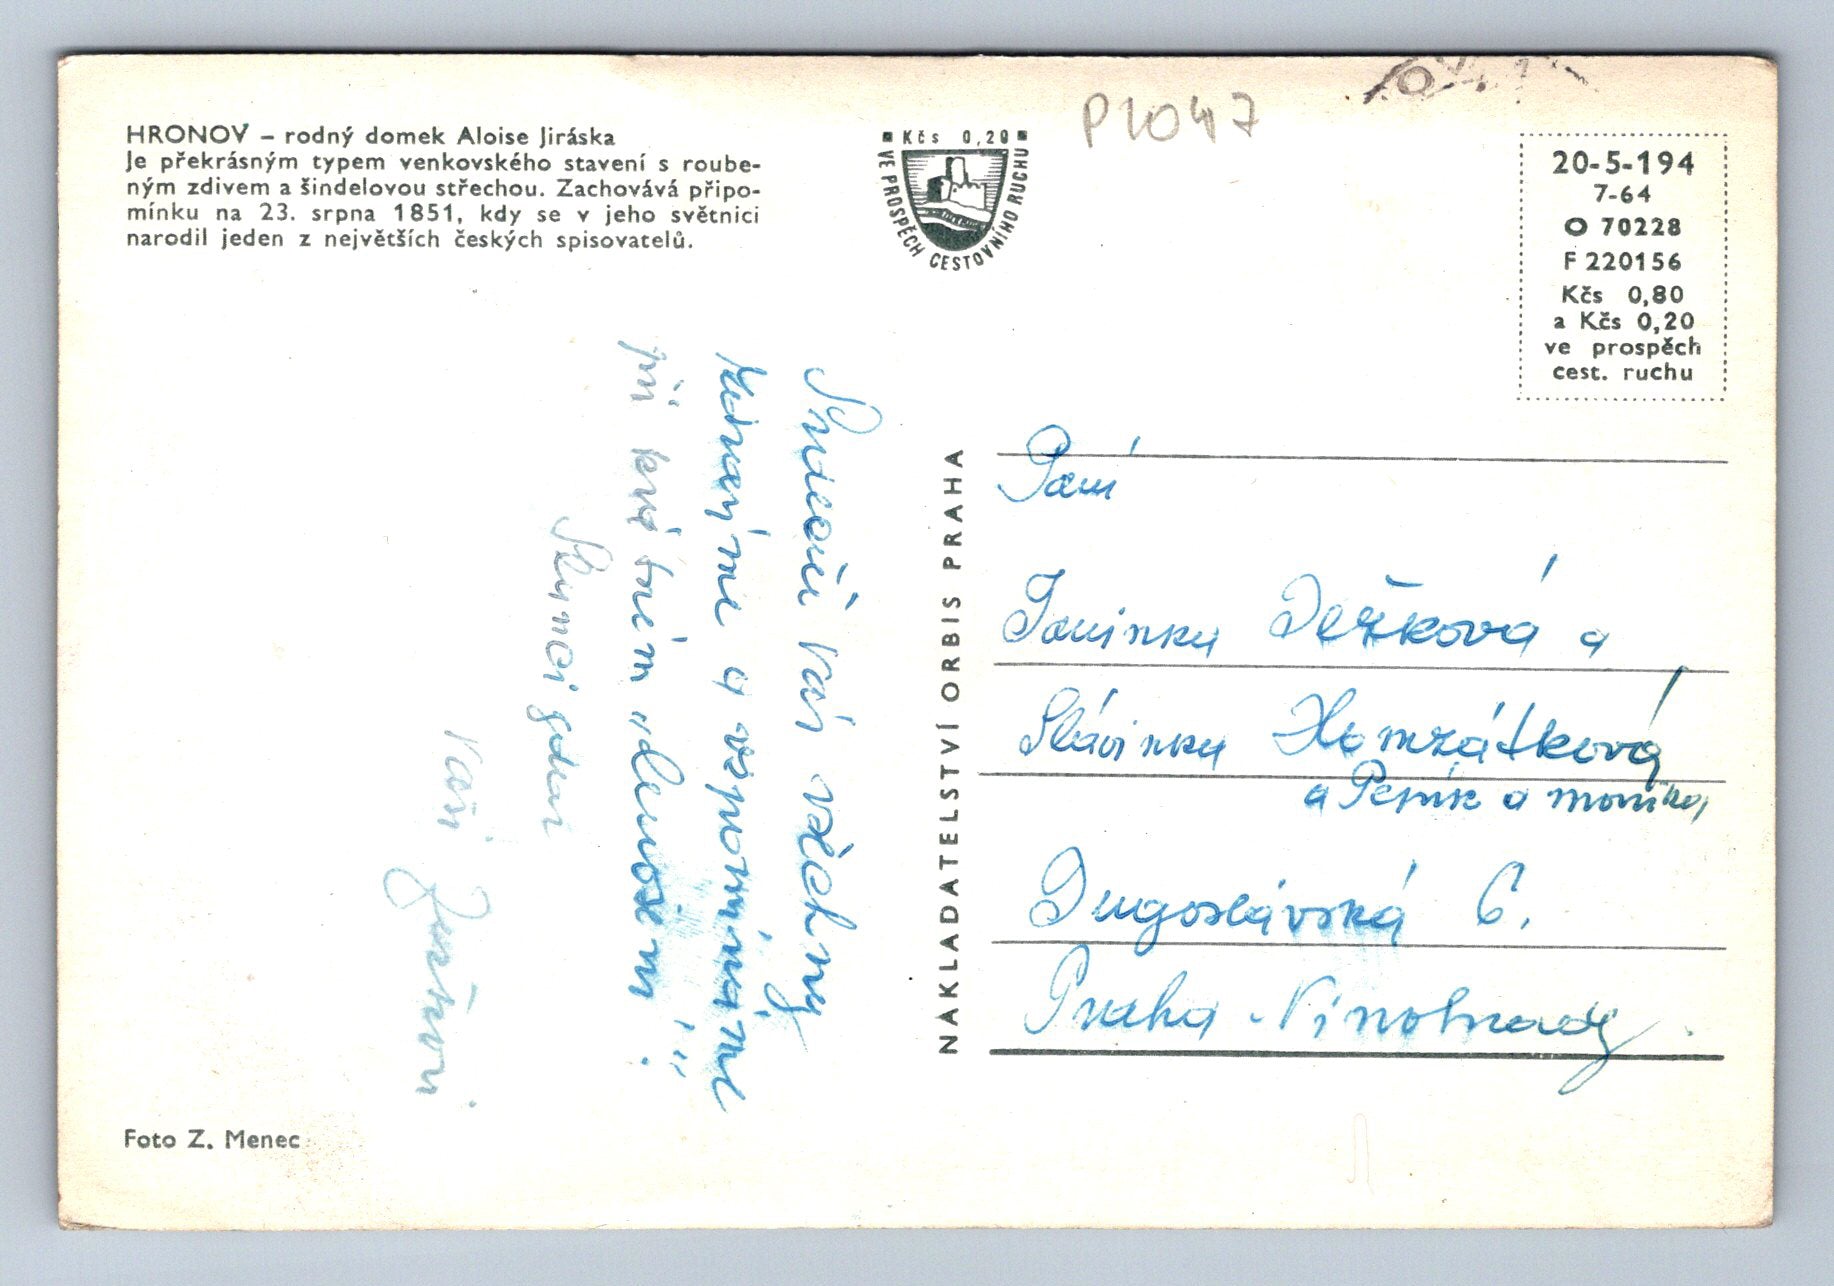 HRONOV – rodný domek Aloise Jiráska
Je překrásným typem venkovského stavení s roube-
ným zdivem a šindelovou střechou. Zachovává připo-
mínku na 23. srpna 1851, kdy se v jeho světnici
narodil jeden z největších českých spisovatelů.
Kčs 0,20
VE PROSPĚCH CESTOVNÍHO RUCHU
P1047
20-5-194
7-64
O 70228
F 220156
Kčs 0,80
a Kčs 0,20
ve prospěch
cest. ruchu
Srdečně Vás všechny
a vzpomínáme
při
Vaši
NAKLADATELSTVÍ ORBIS PRAHA
Paní
Ježková a
Slávinka Homzátková
a Pepík a Monika
Jugoslávská 6.
Praha - Vinohrady.
Foto Z. Menec